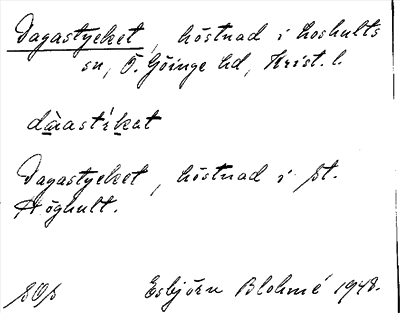 Dagastycket, höstnad i Loshults
sn, Ö. Göinge hd, Krist. l.
dàastíkat
Dagastycket, höstnad i St.
Höghult.
Esbjörn Blohmé 1948.